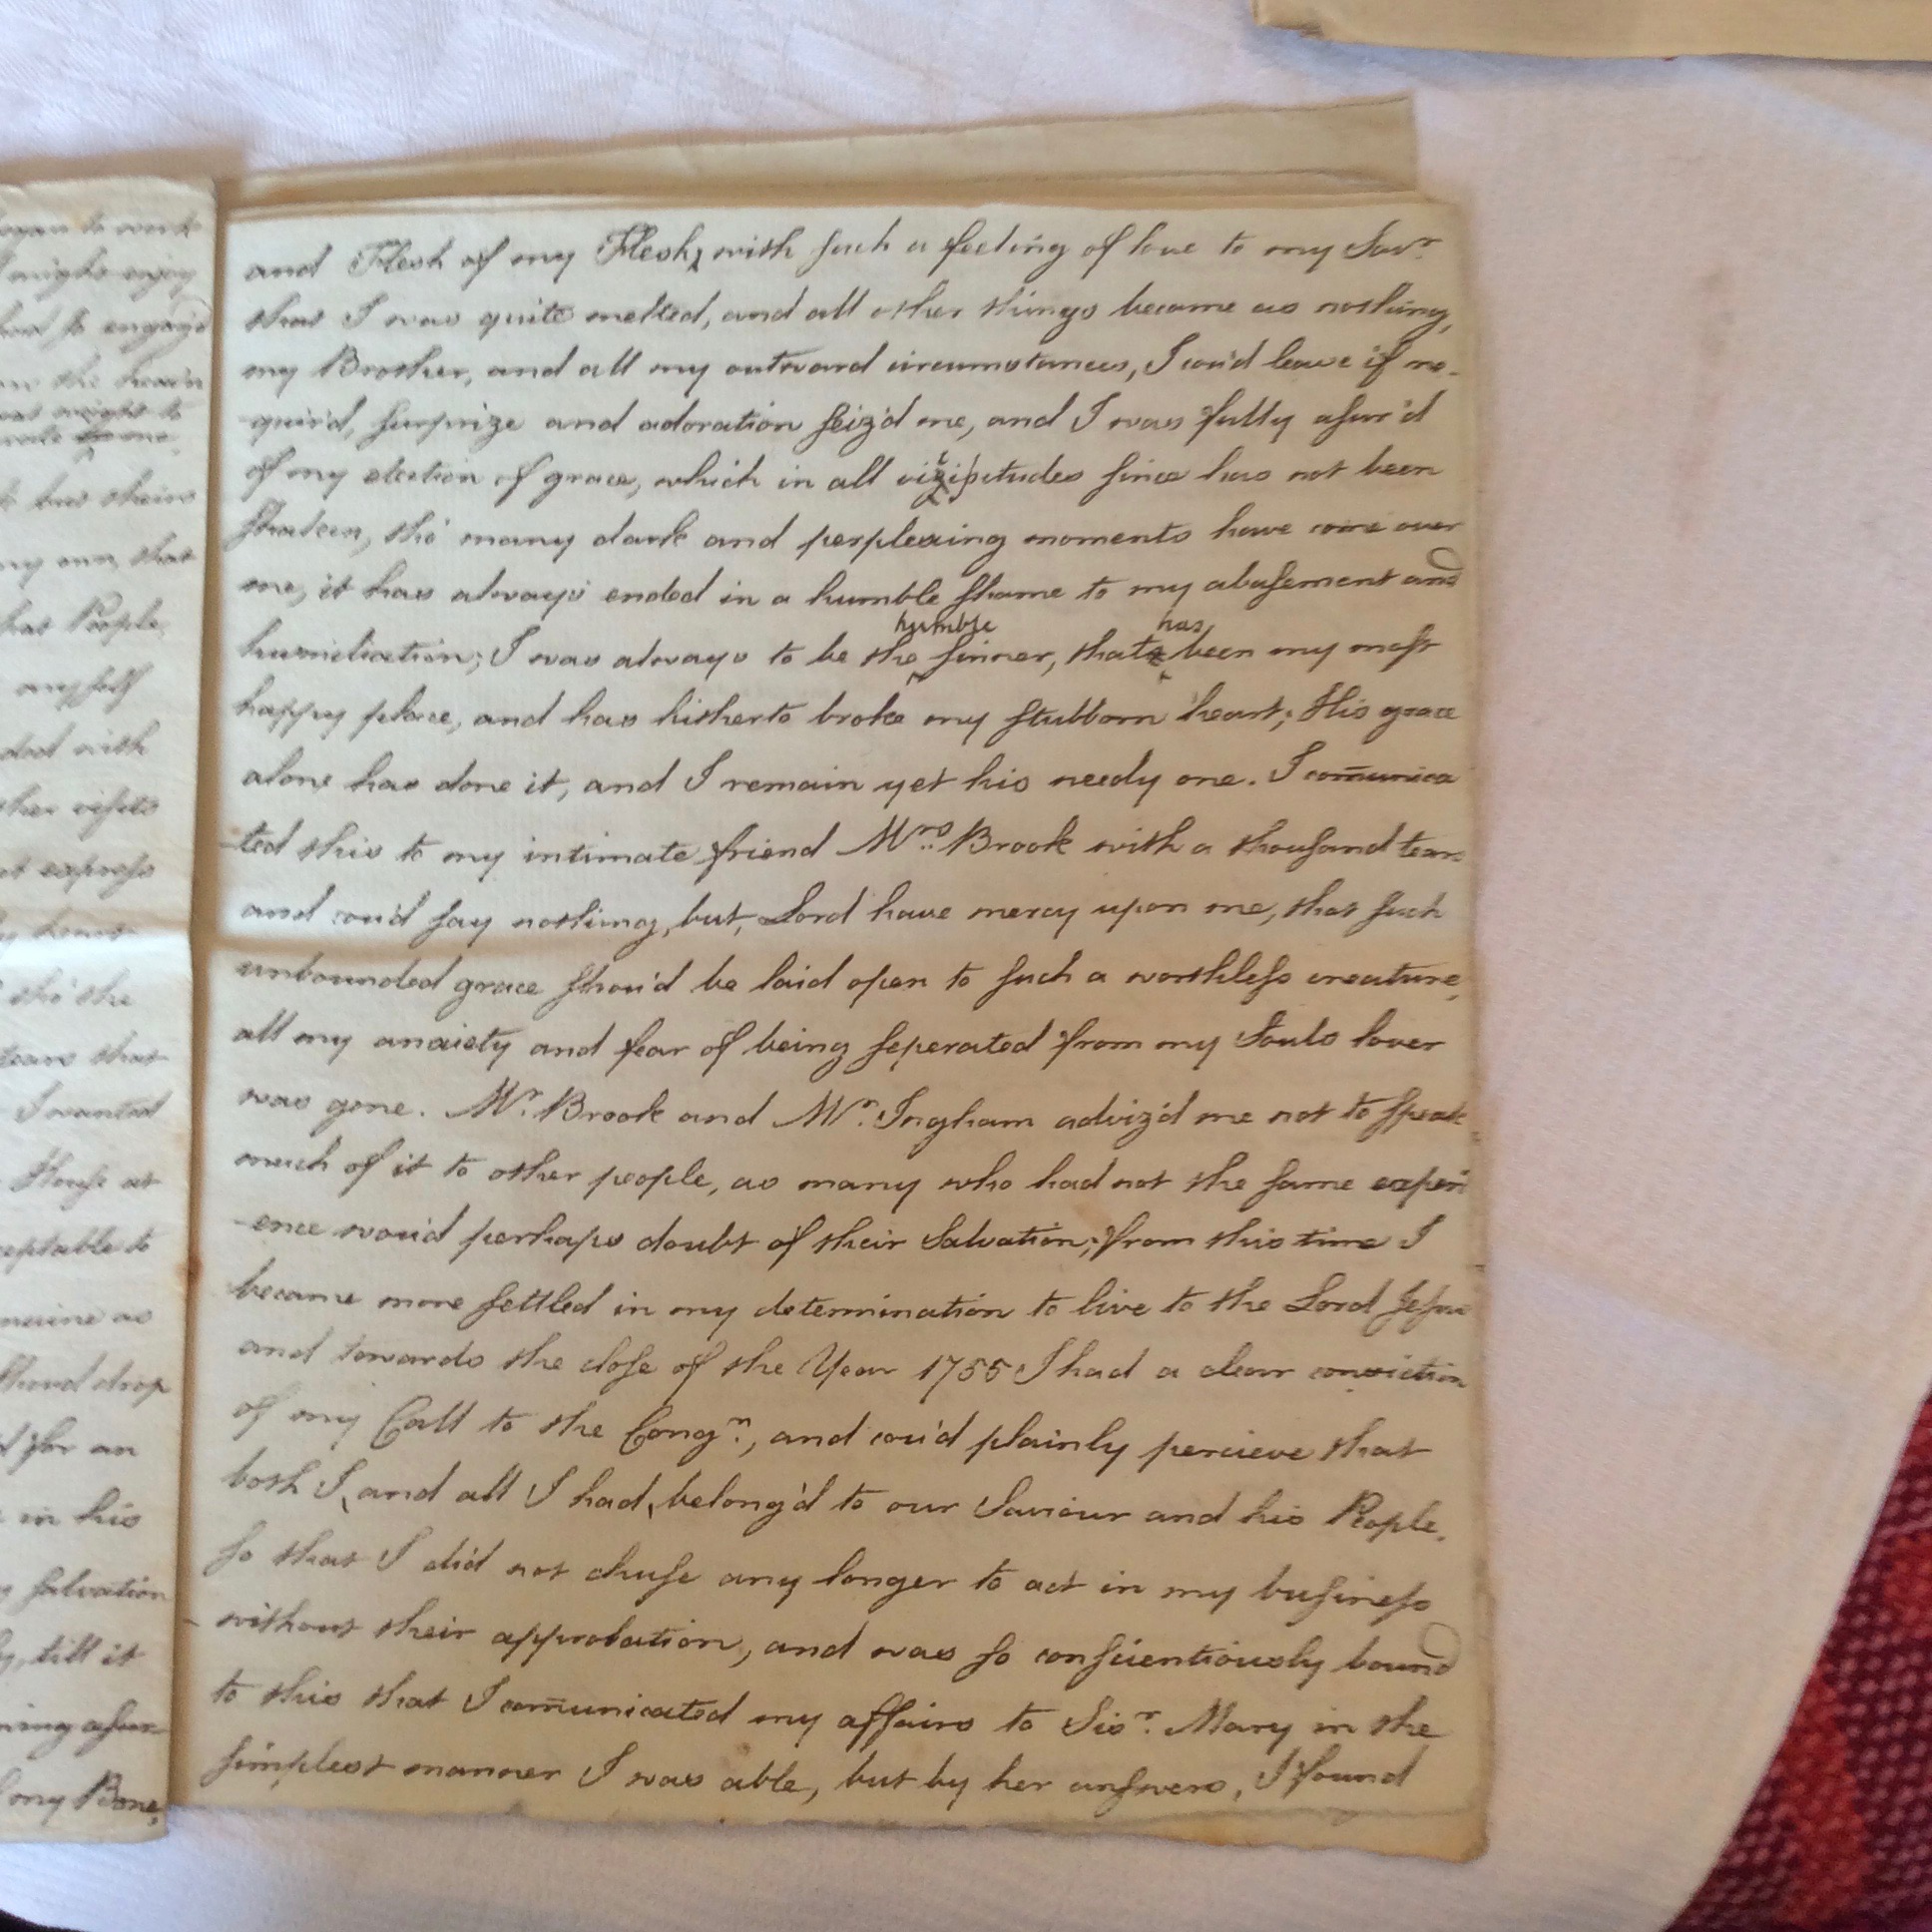 egan to work
I might enjoy
had so engag'd
on the hear'n
vas might to
vale to me
t but theirs
my own, that
that People,
my self
ded with
ther visits
ot express
y heart
tho' she
tears that
I wanted
House at
ceptable to
maine as
Shoud drop
d for an
e in his
y salvation
y, till it
ning assur
of my Bone,
and Flesh of my Flesh, with such a feeling of love to my Savr.
that I was quite melted, and all other things became as nothing,
my Brother, and all my outward circumstances, I cou'd leave if re-
-quir'd, surprize and adoration seiz'd me, and I was fully assur'd
of my election of grace, which in all vicissitudes since has not been
shaken, tho' many dark and perplexing moments have come over
me, it has always ended in a humble shame to my abasement and
humiliation; I was always to be the humble sinner, that has been my most
happy place, and has hitherto broke my stubborn heart; His grace
alone has done it, and I remain yet his needy one. I com̄unica
-ted this to my intimate friend Mrs. Brook with a thousand tears
and cou'd say nothing, but, Lord have mercy upon me, that such
unbounded grace shou'd be laid open to such a worthless creature,
all my anxiety and fear of being seperated from my Souls lover
was gone. Mr. Brook and Mr. Ingham adviz'd me not to speak
much of it to other people, as many who had not the same experi
-ence wou'd perhaps doubt of their Salvation; from this time I
became more settled in my determination to live to the Lord Jesus
and towards the close of the Year 1755 I had a clear conviction
of my Call to the Congn., and cou'd plainly percieve that
both I, and all I had, belong'd to our Saviour and his People.
so that I did not chuse any longer to act in my business
without their approbation, and was so conscientiously bound
to this that I com̄unicated my affairs to Sisr. Mary in the
simplest manner I was able, but by her answers, I found